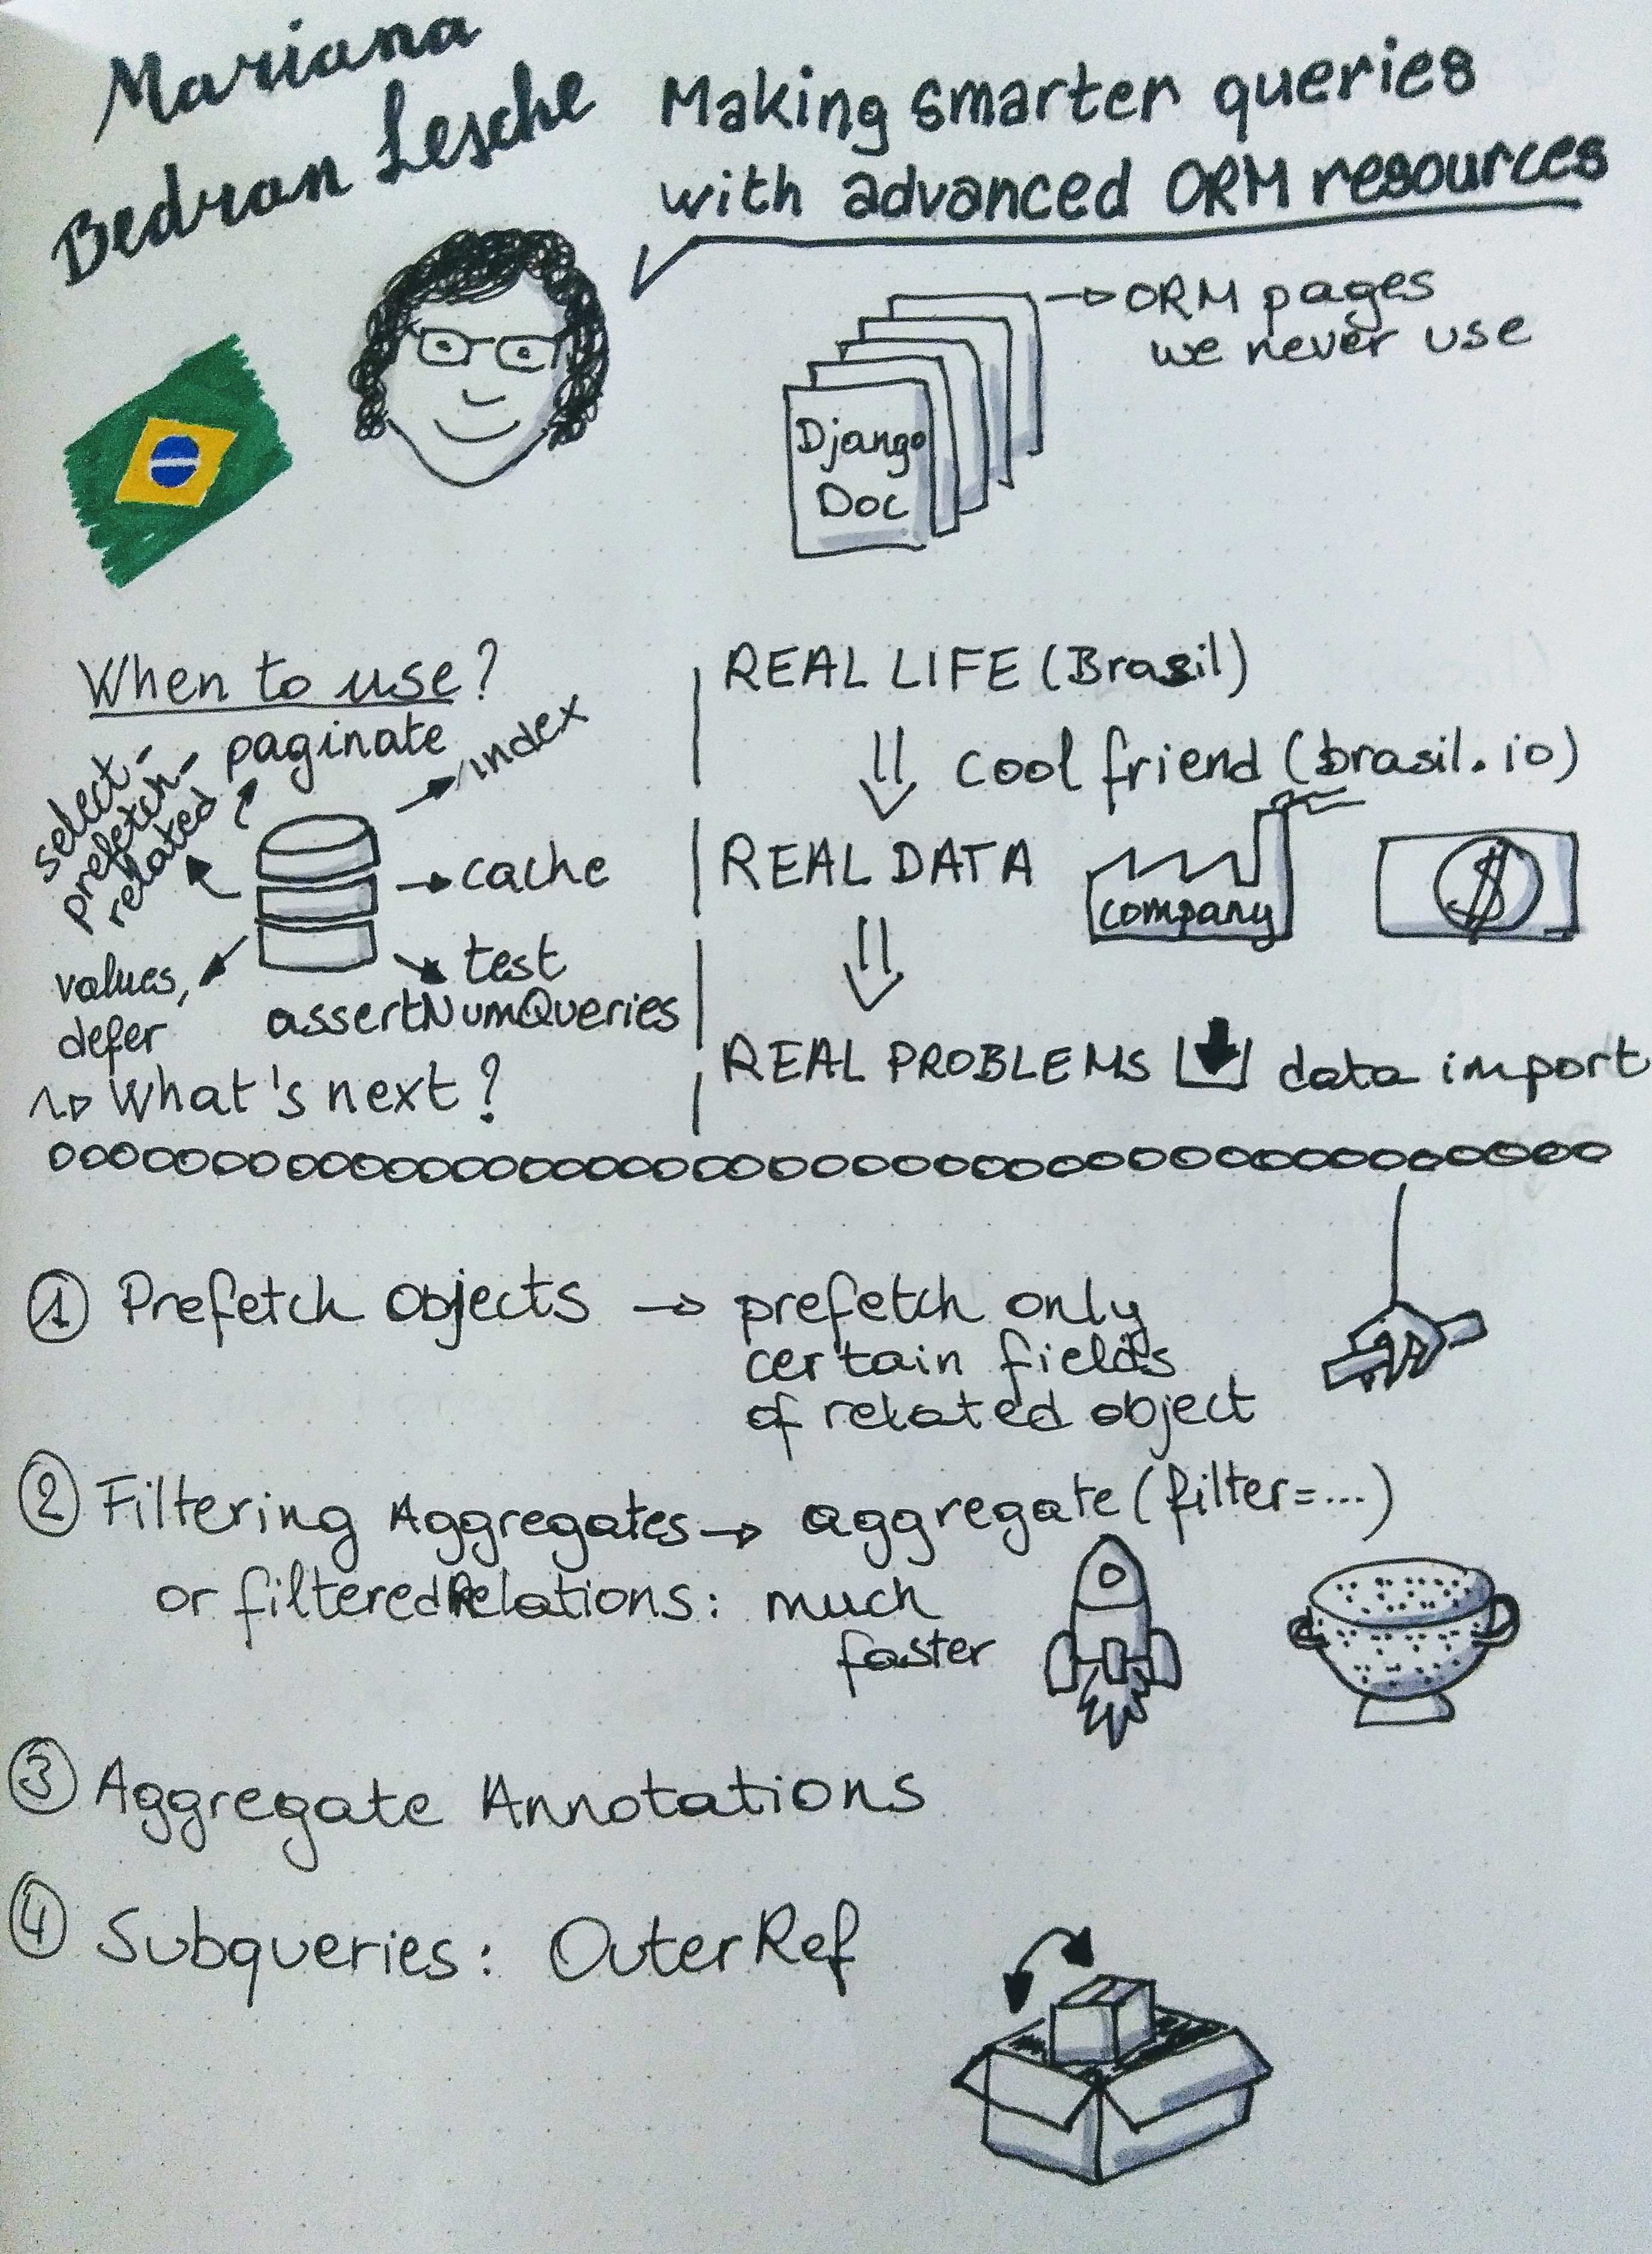 Mariana
Bedran Lesche
Making smarter queries
with advanced ORM resources
ORM pages
we never use
Django
Doc
When to use?
paginate
index
select-
prefetch-
related
cache
values,
defer
test
assertNumQueries
What's next?
REAL LIFE (Brasil)
cool friend (brasil.io)
REAL DATA
company
$
REAL PROBLEMS
data import
1 Prefetch Objects → prefetch only
certain fields
of related object
2 Filtering Aggregates → aggregate (filter=...)
or filteredRelations: much
faster
3 Aggregate Annotations
4 Subqueries: OuterRef